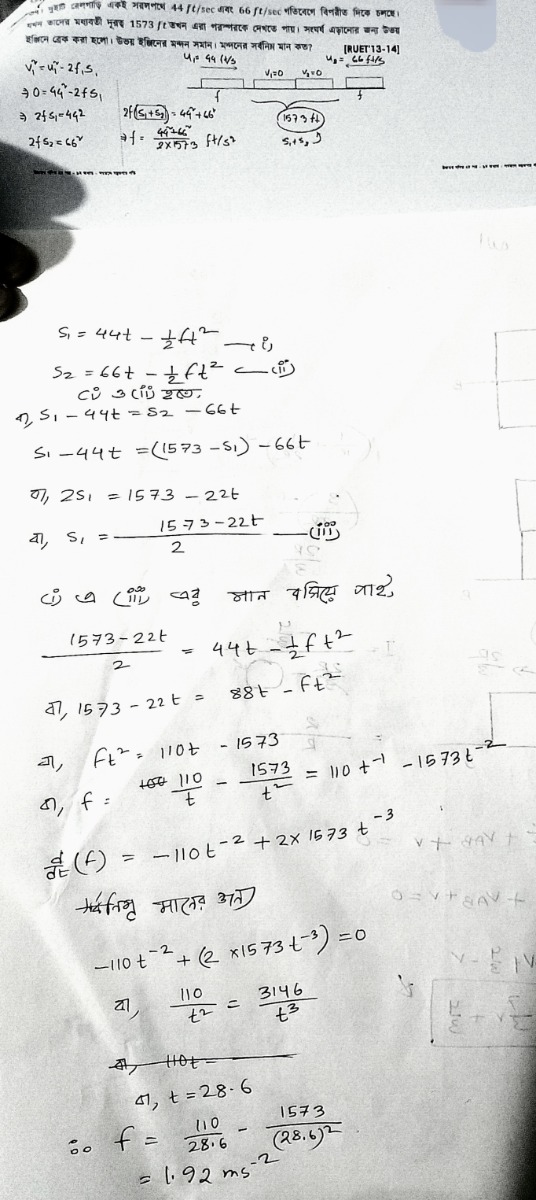 দুইটি রেলগাড়ি একই সরলপথে 44 ft/sec এবং 66 ft/sec গতিবেগে বিপরীত দিকে চলছে।
যখন তাদের মধ্যবর্তী দূরত্ব 1573 ft তখন এরা পরস্পরকে দেখতে পায়। সংঘর্ষ এড়ানোর জন্য উভয়
ইঞ্জিনে ব্রেক করা হলো। উভয় ইঞ্জিনের মন্দন সমান। মন্দনের সর্বনিম্ন মান কত? [RUET'13-14]
u₁= 44 ft/s
66 ft/s
v₁=0 v₂=0
f
f
1573 ft
s₁+s₂
v₁² = u₁² - 2f₁s₁
⇒ 0=44² -2fs₁
⇒ 2fs₁=44²
2fs₂=66²
2f(s₁+s₂)=44²+66²
⇒ f = 44²+66² / 2×1573 ft/s²
s₁ = 44t - ½ft² —i,
s₂ = 66t - ½ft² —(ii)
(i) ও (ii) হতে,
বা, s₁ - 44t = s₂ - 66t
s₁ - 44t = (1573 - s₁) - 66t
বা, 2s₁ = 1573 - 22t
বা, s₁ = 1573-22t / 2 —(iii)
(i) এ (iii) এর মান বসিয়ে পাই,
1573-22t / 2 = 44t - ½ft²
বা, 1573 - 22t = 88t - ft²
বা, ft² = 110t - 1573
বা, f = 110/t - 1573/t² = 110t⁻¹ - 1573t⁻²
d/dt (f) = -110t⁻² + 2×1573t⁻³
মানের জন্য
-110t⁻² + (2×1573t⁻³) = 0
বা, 110/t² = 3146/t³
বা, 110t =
বা, t = 28.6
∴ f = 110/28.6 - 1573/(28.6)²
= 1.92 ms⁻²